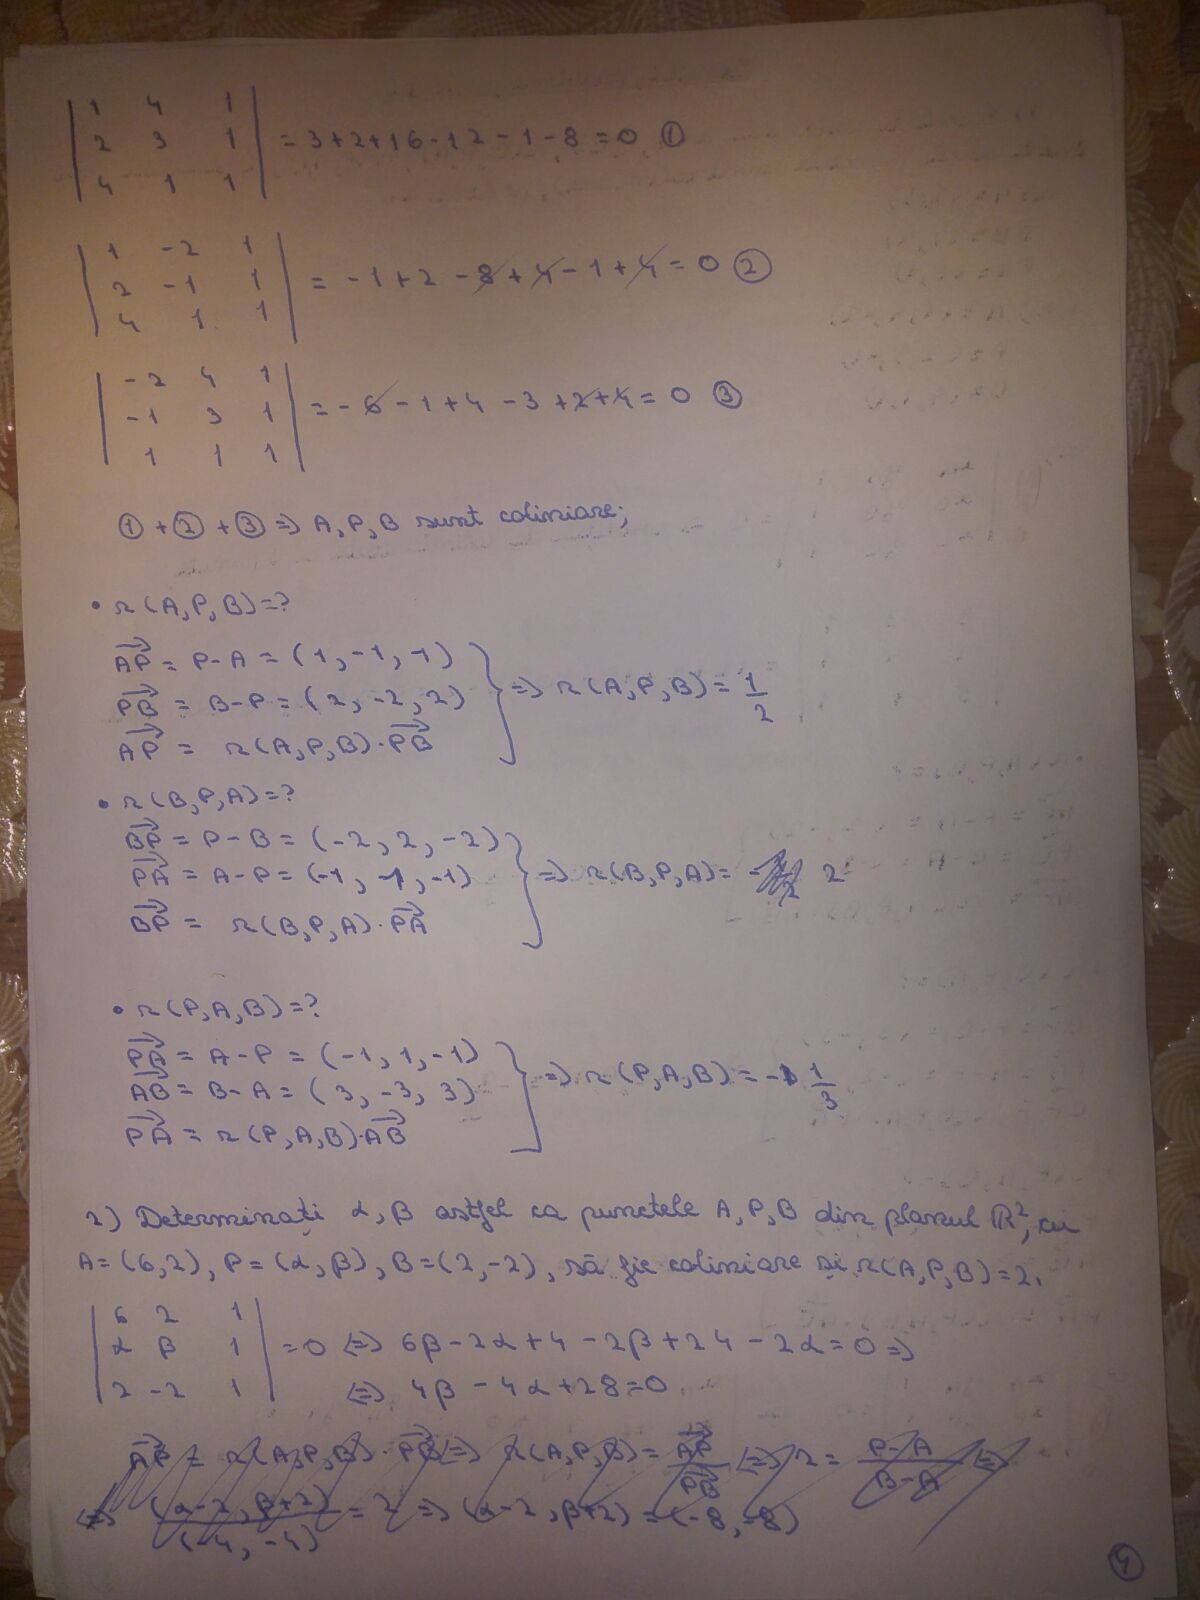 | 1 4 1 |
| 2 3 1 | = 3+2+16-12-1-8=0 ①
| 4 1 1 |
| 1 -2 1 |
| 2 -1 1 | = -1+2-8+4-1+4=0 ②
| 4 1 1 |
| -2 4 1 |
| -1 3 1 | = -6-1+4-3+2+4=0 ③
| 1 1 1 |
①+②+③ => A,P,B sunt coliniare;
• r(A,P,B)=?
AP = P-A = (1,-1,1)
PB = B-P = (2,-2,2) } => r(A,P,B)= 1/2
AP = r(A,P,B)·PB
• r(B,P,A)=?
BP = P-B = (-2, 2, -2)
PA = A-P = (-1, -1, -1) } => r(B,P,A)= 2
BP = r(B,P,A)·PA
• r(P,A,B)=?
PA = A-P = (-1,1,-1)
AB = B-A = (3,-3,3) } => r(P,A,B)= - 1/3
PA = r(P,A,B)·AB
2) Determinați α, β astfel ca punctele A,P,B din planul ℝ², cu
A=(6,2), P=(α,β), B=(2,-2), să fie coliniare și r(A,P,B)=2.
| 6 2 1 |
| α β 1 | =0 <=> 6β-2α+4-2β+24-2α=0 =>
| 2 -2 1 | <=> 4β-4α+28=0
AP = r(A,P,B)·PB <=> r(A,P,B)= AP/PB <=> 2= P-A/B-A <=>
<=> (α-2,β+2)/(-4,-4) = 2 => (α-2,β+2)=(-8,-8)
④